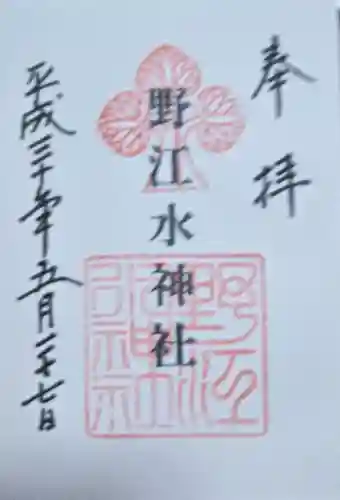 奉拝
野江水神社
平成三十年五月二十七日
野江水神社